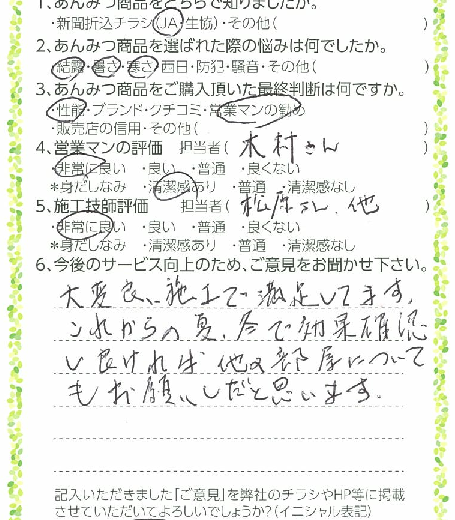 1、あんみつ商品をどちらで知りましたか。
・新聞折込チラシ(JA)生協)・その他( )
2、あんみつ商品を選ばれた際の悩みは何でしたか。
・結露・暑さ・寒さ・西日・防犯・騒音・その他( )
3、あんみつ商品をご購入頂いた最終判断は何ですか。
・性能・ブランド・クチコミ・営業マンの勧め
・販売店の信用・その他( )
4、営業マンの評価 担当者( 木村さん )
・非常に良い ・良い ・普通 ・良くない
*身だしなみ ・清潔感あり ・普通 ・清潔感なし
5、施工技師評価 担当者( 松原さん、他 )
・非常に良い ・良い ・普通 ・良くない
*身だしなみ ・清潔感あり ・普通 ・清潔感なし
6、今後のサービス向上のため、ご意見をお聞かせ下さい。
大変良い施工で満足してます。
これからの夏、冬で効果確認
し良ければ他の部屋について
もお願いしたいと思います。
記入いただきました「ご意見」を弊社のチラシやHP等に掲載
させていただいてよろしいでしょうか?(イニシャル表記)